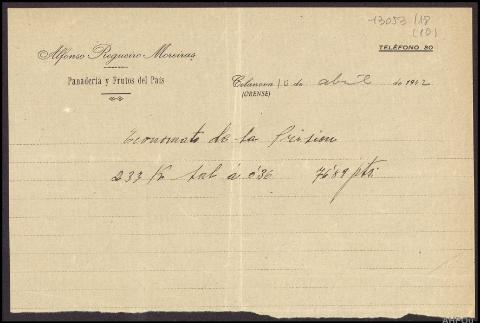 13053/18
(10)
TELÉFONO 80
Alfonso Regueiro Moreiras
Panadería y Frutos del País
Celanova 10 de abril de 1942
(ORENSE)
Economato de la Prision
233 K sal á 0'36 76'89 pts.